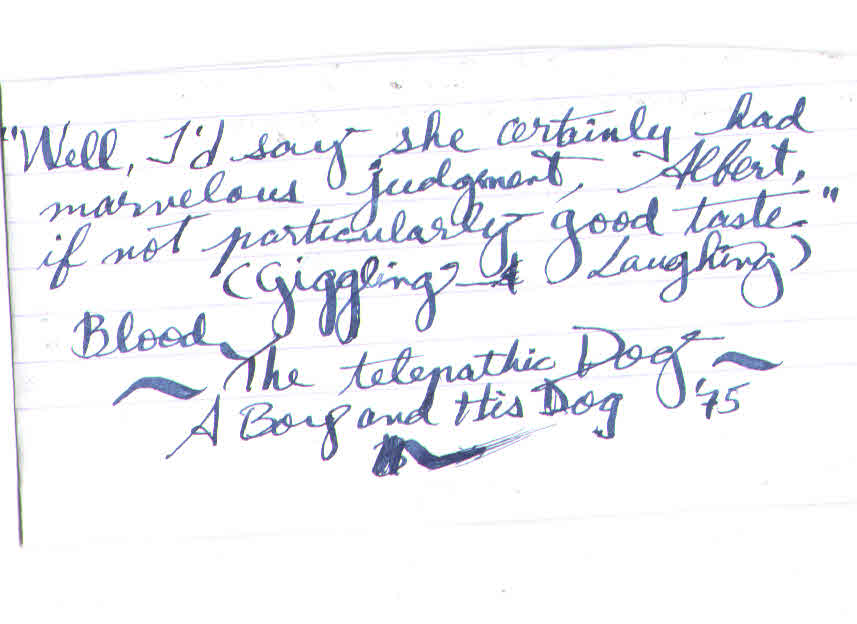 "Well, I'd say she certainly had
marvelous judgment, Albert,
if not particularly good taste."
(Giggling & Laughing)
Blood
The telepathic Dog
A Boy and His Dog '75